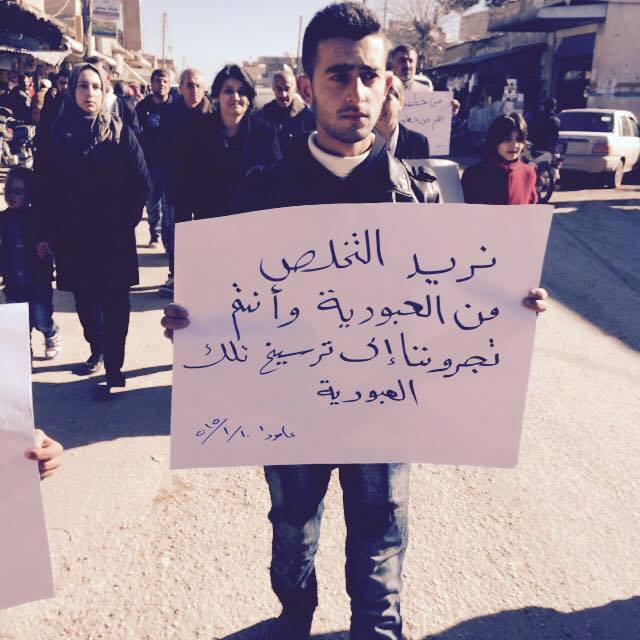 نريد التخلص
من العبودية وأنتم
تجروننا إلى ترسيخ تلك
العبودية
عامودا ٢٠١٥/١/١٠